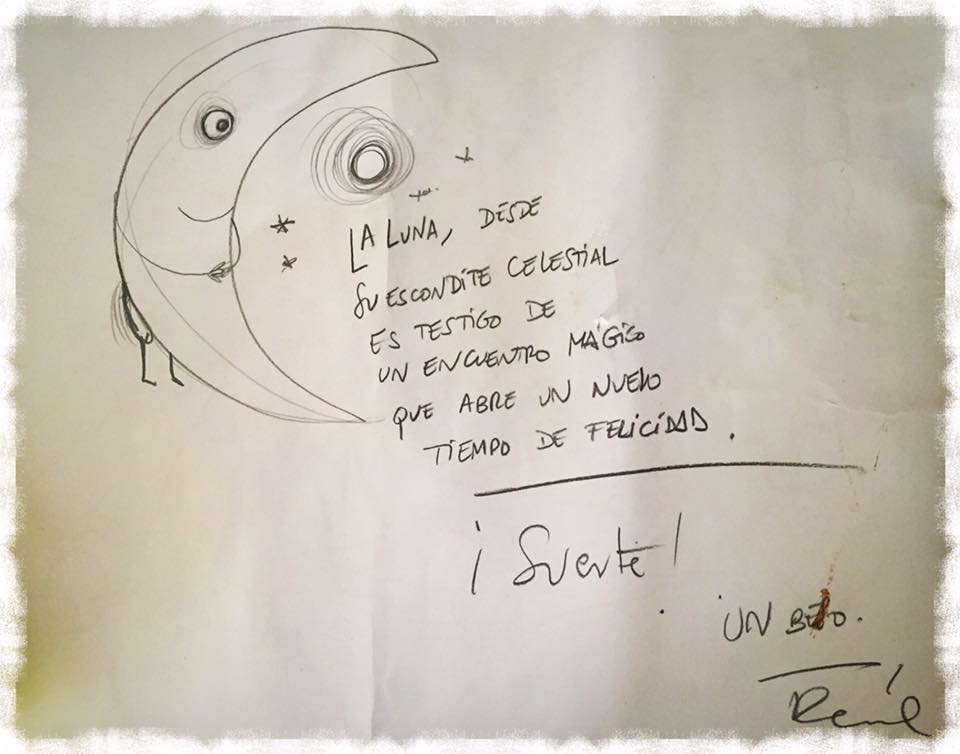 LA LUNA, DESDE
SU ESCONDITE CELESTIAL
ES TESTIGO DE
UN ENCUENTRO MÁGICO
QUE ABRE UN NUEVO
TIEMPO DE FELICIDAD.
¡Suerte!
UN BESO.